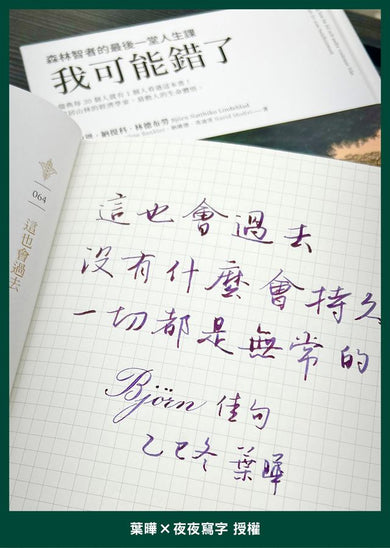 森林智者的最後一堂人生課
我可能錯了
納提科．林德布勞 Björn Natthiko Lindeblad
064
這也會過去
這也會過去
沒有什麼會持久
一切都是無常的
Björn 佳句
乙巳冬 葉曄
葉曄×夜夜寫字 授權